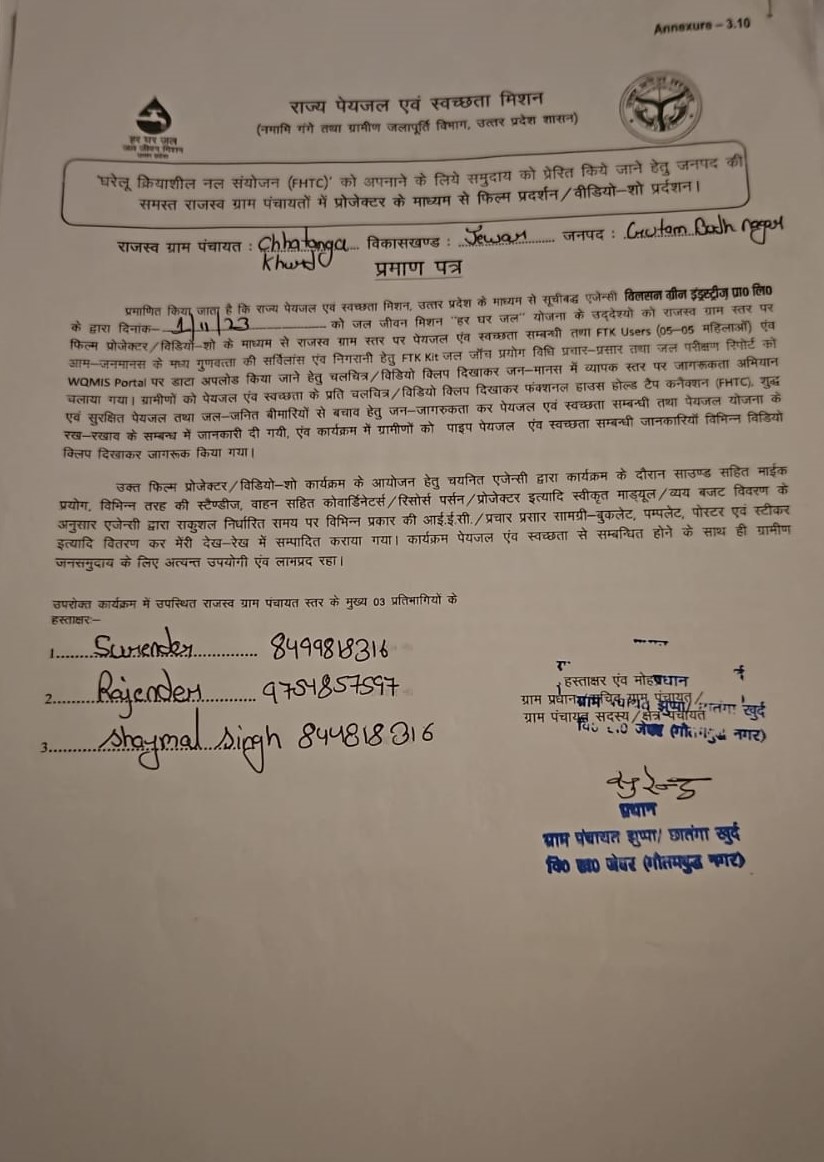 Annexure – 3.10
राज्य पेयजल एवं स्वच्छता मिशन
(नमामि गंगे तथा ग्रामीण जलापूर्ति विभाग, उत्तर प्रदेश शासन)
हर घर जल
जल जीवन मिशन
'घरेलू क्रियाशील नल संयोजन (FHTC)' को अपनाने के लिये समुदाय को प्रेरित किये जाने हेतु जनपद की
समस्त राजस्व ग्राम पंचायतों में प्रोजेक्टर के माध्यम से फिल्म प्रदर्शन/वीडियो–शो प्रर्दशन।
राजस्व ग्राम पंचायत : Chhatanga विकासखण्ड : Jewar जनपद : Gautam Bodh nagar
Khurd
प्रमाण पत्र
प्रमाणित किया जाता है कि राज्य पेयजल एवं स्वच्छता मिशन, उत्तर प्रदेश के माध्यम से सूचीबद्ध एजेन्सी विलसन ग्रीन इंडस्ट्रीज़ प्रा0 लि0
के द्वारा दिनांक– 1/11/23 को जल जीवन मिशन "हर घर जल" योजना के उद्देश्यो को राजस्व ग्राम स्तर पर
फिल्म प्रोजेक्टर/विडियो–शो के माध्यम से राजस्व ग्राम स्तर पर पेयजल एंव स्वच्छता सम्बन्धी तथा FTK Users (05–05 महिलाओं) एंव
आम–जनमानस के मध्य गुणवत्ता की सर्विलांस एंव निगरानी हेतु FTK Kit जल जाँच प्रयोग विधि प्रचार–प्रसार तथा जल परीक्षण रिपोर्ट को
WQMIS Portal पर डाटा अपलोड किया जाने हेतु चलचित्र/विडियो क्लिप दिखाकर जन–मानस में व्यापक स्तर पर जागरूकता अभियान
चलाया गया। ग्रामीणों को पेयजल एंव स्वच्छता के प्रति चलचित्र/विडियो क्लिप दिखाकर फंक्शनल हाउस होल्ड टैप कनैक्शन (FHTC), शुद्ध
एवं सुरक्षित पेयजल तथा जल–जनित बीमारियों से बचाव हेतु जन–जागरुकता कर पेयजल एवं स्वच्छता सम्बन्धी तथा पेयजल योजना के
रख–रखाव के सम्बन्ध में जानकारी दी गयी, एंव कार्यक्रम में ग्रामीणों को पाइप पेयजल एंव स्वच्छता सम्बन्धी जानकारियॉ विभिन्न विडियो
क्लिप दिखाकर जागरूक किया गया।
उक्त फिल्म प्रोजेक्टर/विडियो–शो कार्यक्रम के आयोजन हेतु चयनित एजेन्सी द्वारा कार्यक्रम के दौरान साउण्ड सहित माईक
प्रयोग, विभिन्न तरह की स्टैण्डीज, वाहन सहित कोवार्डिनेटर्स/रिसोर्स पर्सन/प्रोजेक्टर इत्यादि स्वीकृत माड्यूल/व्यय बजट विवरण के
अनुसार एजेन्सी द्वारा सकुशल निर्धारित समय पर विभिन्न प्रकार की आई.ई.सी./प्रचार प्रसार सामग्री–बुकलेट, पम्पलेट, पोस्टर एवं स्टीकर
इत्यादि वितरण कर मेरी देख–रेख में सम्पादित कराया गया। कार्यक्रम पेयजल एंव स्वच्छता से सम्बन्धित होने के साथ ही ग्रामीण
जनसमुदाय के लिए अत्यन्त उपयोगी एंव लाभप्रद रहा।
उपरोक्त कार्यक्रम में उपस्थित राजस्व ग्राम पंचायत स्तर के मुख्य 03 प्रतिभागियों के
हस्ताक्षरः–
1. Surender 8499818316
2. Rajender 9754857597
3. Shaymal Singh 844818316
हस्ताक्षर एंव मोहर
प्रधान
ग्राम प्रधान/सचिव ग्राम पंचायत/
ग्राम पंचायत सदस्य/क्षेत्र पंचायत
ग्राम पंचायत झुप्पा/ छातंगा खुर्द
जेवर (गौतमबुद्ध नगर)
सुरेन्द्र
प्रधान
ग्राम पंचायत झुप्पा/ छातंगा खुर्द
वि0 ख0 जेवर (गौतमबुद्ध नगर)